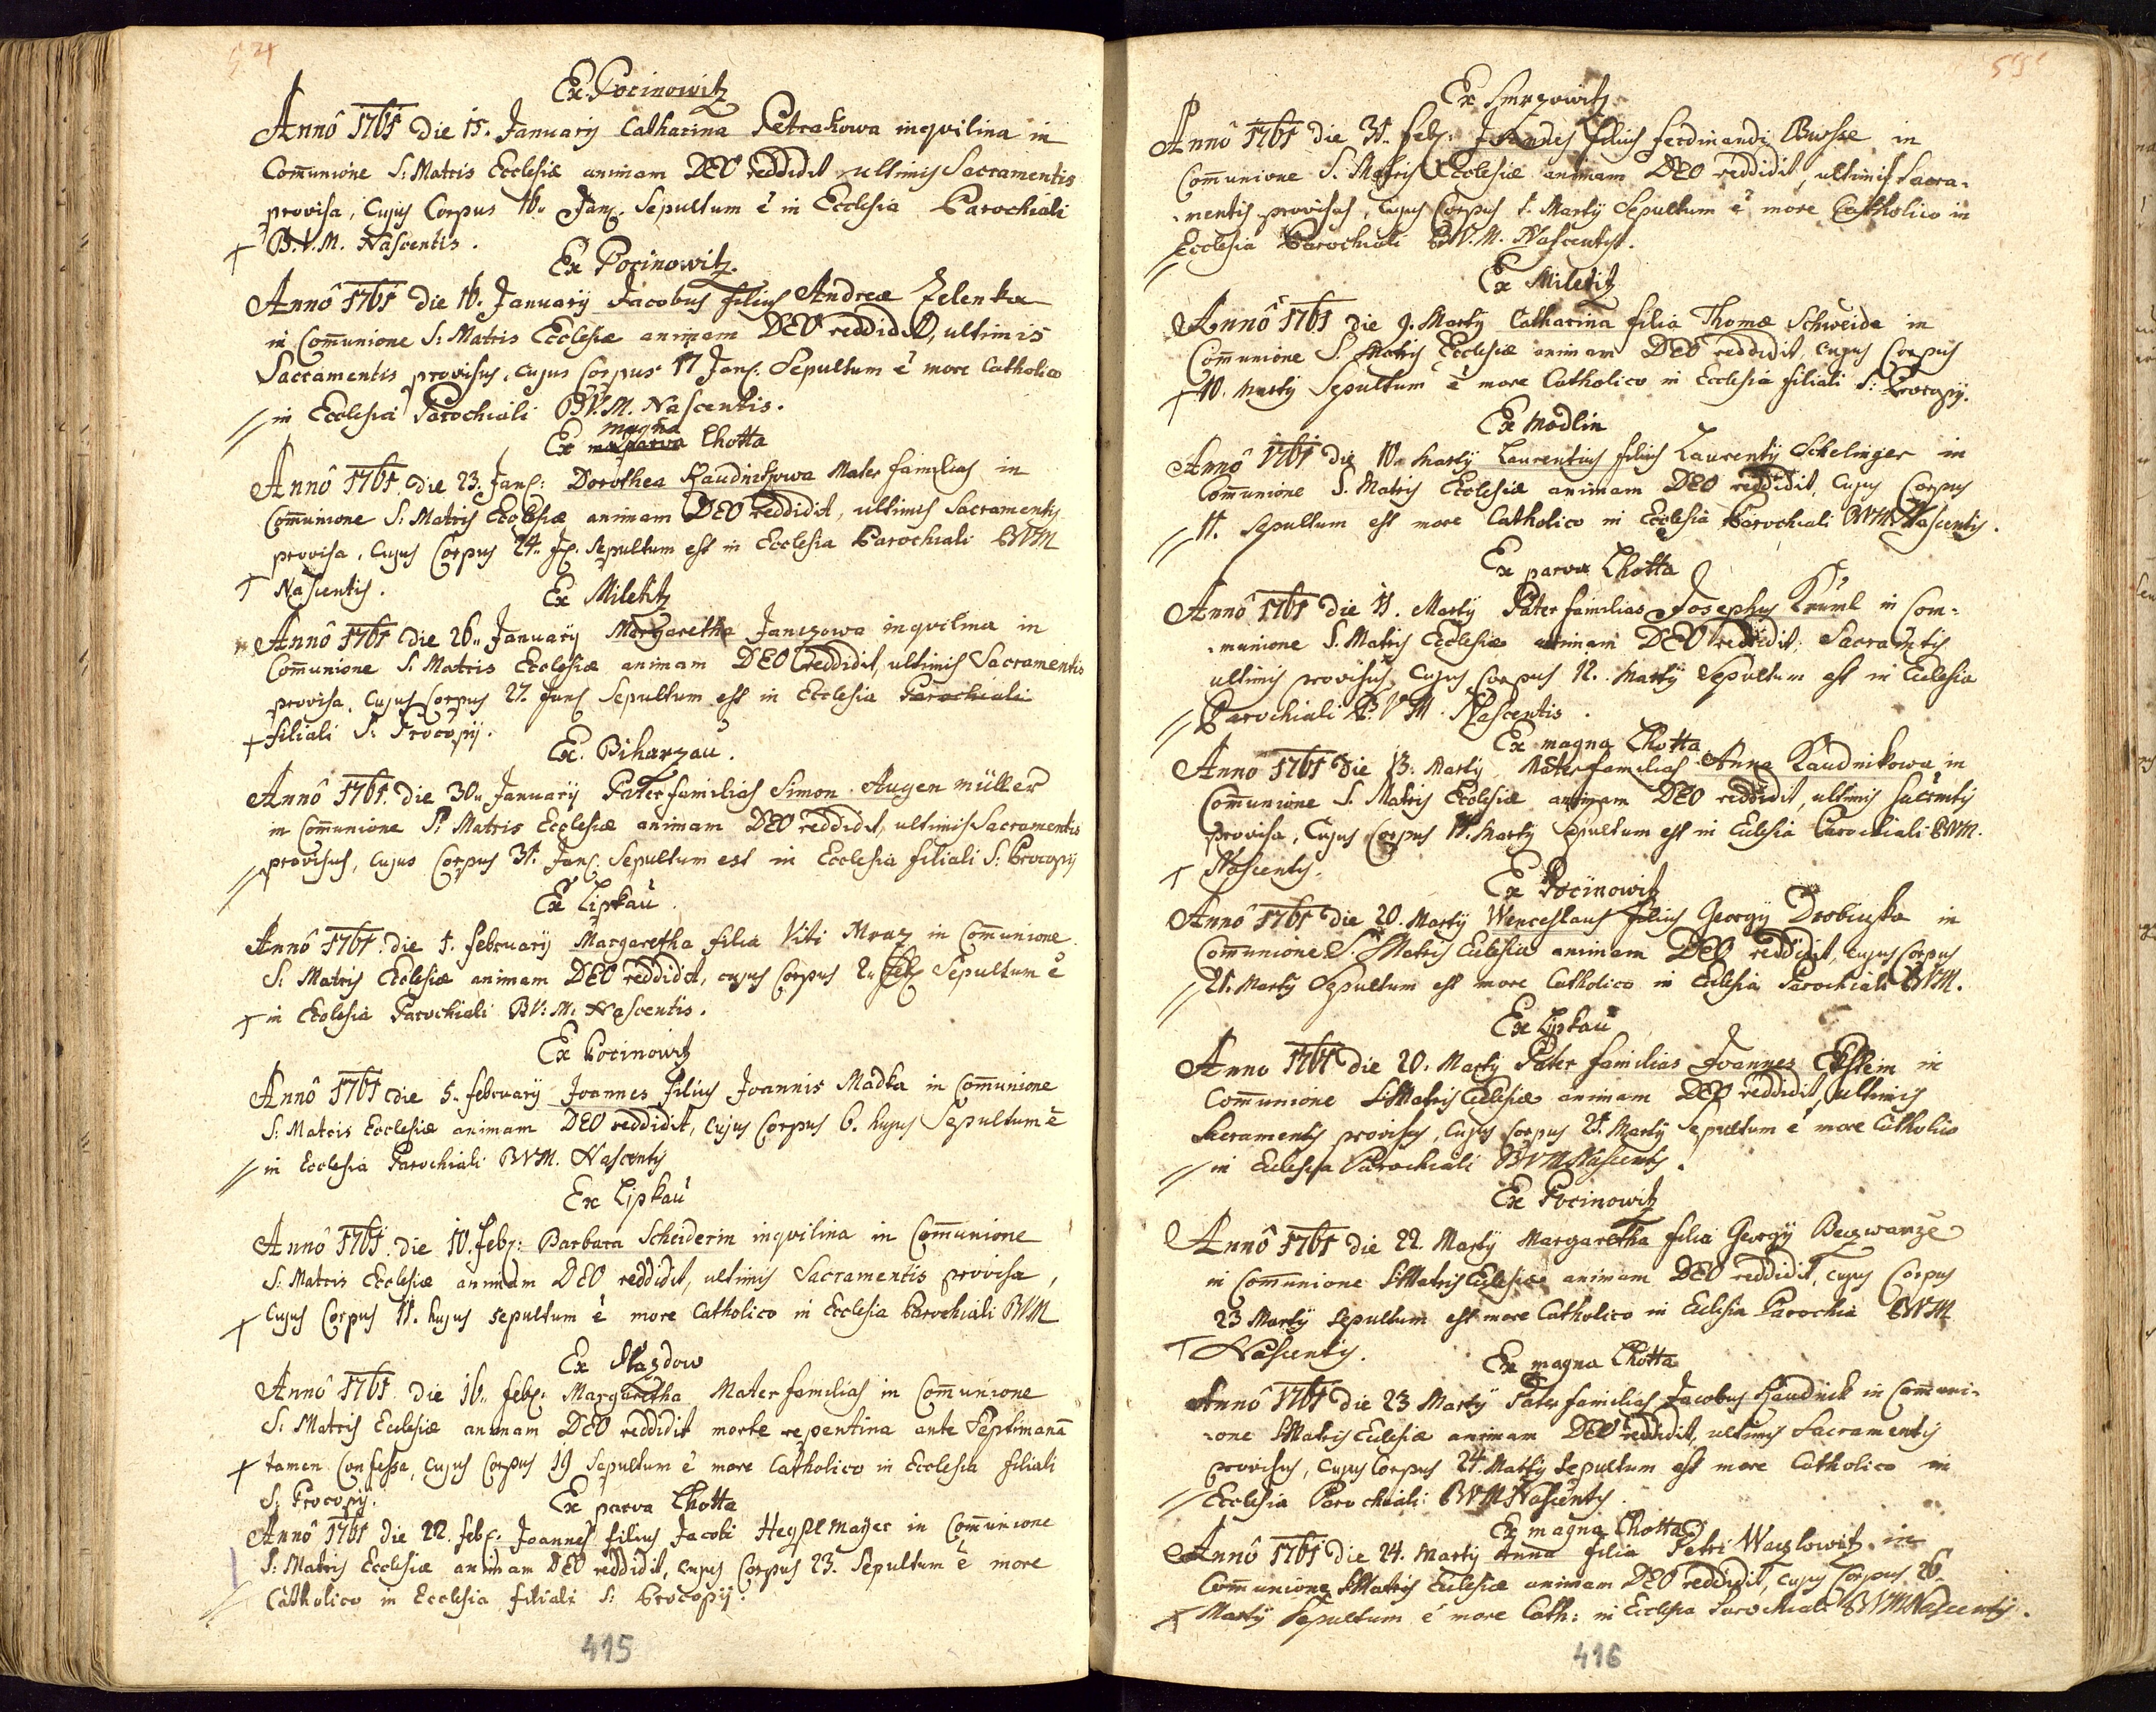 Ex Pocinowitz
Annô 1761 die 15. Januarij Catharina Petrakowa inqvilina in
Com̄unione S: Matris Ecclesiæ animam DEO reddidit ultimis Sacramentis
provisa, Cujus Corpus 16. Jan: Sepultum ē in Ecclesia Parochiali
B.V.M. Nascentis.
Ex Pocinowitz.
Annô 1761 die 16. Januarij Jacobus filius Andreæ Zelenka
in Com̄unione S: Matris Ecclesiæ animam DEO reddidit, ultimis
Sacramentis provisus, cujus Corpus 17 Jan: Sepultum ē more Catholico
in Ecclesia Parochiali BV.M. Nascentis.
Ex magna Lhotta
Annô 1761 die 23. Jan: Dorothea Kaudnikowa Mater familias in
Com̄unione S: Matris Ecclesiæ animam DEO reddidit, ultimis Sacramentis
provisa, Cujus Corpus 24. Ja: Sepultum est in Ecclesia Parochiali BVM
Nascentis.
Ex Miletitz
Annô 1761 die 26. Januarij Margaretha Janczowa inqvilina in
Com̄unione S: Matris Ecclesiæ animam DEO reddidit, ultimis Sacramentis
provisa, Cujus Corpus 27. Jan: Sepultum est in Ecclesia Parochiali
filiali S: Procopij.
Ex Biharzau.
Annô 1761 die 30. Januarij Paterfamilias Simon Augenmüller
in Com̄unione S: Matris Ecclesiæ animam DEO reddidit, ultimis Sacramentis
provisus, cujus Corpus 31. Jan: Sepultum est in Ecclesia filiali S: Procopij
Ex Lipkau.
Annô 1761 die 1. februarij Margaretha filia Viti Mraz in Com̄unione
S. Matris Ecclesiæ animam DEO reddidit, cujus Corpus 2. feb: Sepultum ē
in Ecclesia Parochiali BV:M: Nascentis.
Ex Pocinowitz
Annô 1761 die 5. februarij Joannes filius Joannis Madka in Com̄unione
S: Matris Ecclesiæ animam DEO reddidit, cujus Corpus 6. hujus Sepultum ē
in Ecclesia Parochiali BVM. Nascentis
Ex Lipkau
Annô 1761 die 10. feb: Barbara Scheiderin inqvilina in Com̄unione
S: Matris Ecclesiæ animam DEO reddidit, ultimis Sacramentis provisa,
cujus Corpus 11. hujus sepultum ē more Catholico in Ecclesia Parochiali BVM
Ex Slazdow
Annô 1761 die 16. feb: Margaretha Materfamilias in Com̄unione
S: Matris Ecclesiæ animam DEO reddidit morte repentina ante Septimanā
tamen Confessa, cujus Corpus 19 Sepultum ē more Catholico in Ecclesia filiali
S: Procopij.
Ex parva Lhotta
Annô 1761 die 22. feb: Joannes filius Jacobi Hegplmayer in Com̄unione
S: Matris Ecclesiæ animam DEO reddidit, cujus Corpus 23. Sepultum ē more
Catholico in Ecclesia filiali S: Procopij.
415
Ex Smrzowitz
Annô 1761 die 31. feb: Joannes filius ferdinandi in
Com̄unione S. Matris Ecclesiæ animam DEO reddidit, ultimis Sacra-
-mentis provisus, cujus Corpus 1. Martij Sepultum ē more Catholico in
Ecclesia Parochiali B.V.M. Nascentis.
Ex Miletitz
Annô 1761 die 9. Martij Catharina filia Thomæ Schweida in
Com̄unione S. Matris Ecclesiæ animam DEO reddidit, cujus Corpus
10. Martij Sepultum ē more Catholico in Ecclesia filiali S: Procopij.
Ex Modlin
Annô 1761 die 10. Martij Laurentius filius Laurentij Schelinger in
Com̄unione S. Matris Ecclesiæ animam DEO reddidit, Cujus Corpus
11. Sepultum est more Catholico in Ecclesia Parochiali BVM Nascentis.
Ex parva Lhotta
Annô 1761 die 11. Martij Pater familias Josephus Kruml in Com-
-munione S. Matris Ecclesiæ animam DEO reddidit, Sacramētis
ultimis provisus, Cujus Corpus 12. Martij Sepultum est in Eclesia
Parochiali B.V M. Nascentis.
Ex magna Lhotta
Anno 1761 die 13. Martij Materfamilias Anna Kaudnikowa in
Com̄unione S. Matris Ecclesiæ animam DEO reddidit, ultimis Sacr̄mtis
provisa, Cujus Corpus 14. Martij Sepultum est in Eclesia Parochiali BVM.
Nascentis.
Ex Pocinowitz
Annô 1761 die 20. Martij Wenceslaus filius Georgij Drobiuska in
Com̄unione S. Matris Eclesiæ animam DEO reddidit, cujus Corpus
21. Martij Sepultum est more Catholico in Eclesia Parochiali BVM.
Ex Lipkau
Anno 1761 die 20. Martij Pater familias Joannes Ekstein in
Com̄unione S. Matris Eclesiæ animam DEO reddidit, ultimis
Sacramentis provisus, Cujus Corpus 21. Martij Sepultum ē more Catholico
in Eclesia Parochiali BVM Nascentis.
Ex Pocinowitz
Annô 1761 die 22. Martij Margaretha filia Georgij Beczwarze
in Com̄unione S. Matris Eclesiæ animam DEO reddidit, cujus Corpus
23 Martij Sepultum est more Catholico in Eclesia Parochia BVM
Nascentis.
Ex magna Lhotta
Annô 1761 die 23 Martij Paterfamilias Jacobus Kaudnik in Com̄uni-
-one S Matris Eclesiæ animam DEO reddidit, ultimis Sacramentis
provisus, Cujus Corpus 24. Martij Sepultum est more Catholico in
Ecclesia Parochiali BVM Nascentis.
Ex magna Lhotta
Annô 1761 die 24. Martij Anna filia Petri Waczlowitz in
Com̄unione S Matris Eclesiæ animam DEO reddidit, cujus Corpus 26.
Martij Sepultum ē more Cath: in Ecclesia Parochiali BVM Nascentis.
416